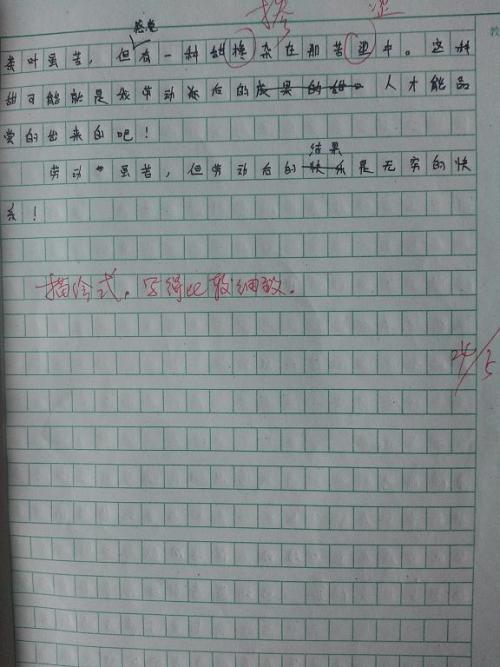 掺 涩
感觉
茶叶虽苦，但有一种甜杂在那苦中。这种
甜可能就是劳动后的人才能品
尝的出来的吧！
结果
劳动虽苦，但劳动后的是无穷的快
乐！
描绘式，写得比较细致。
24/5